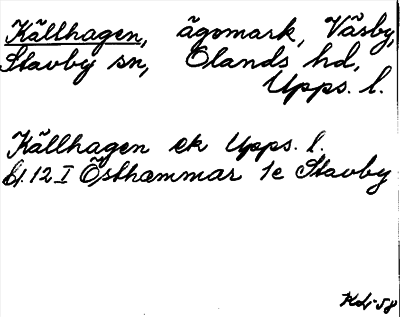 Källhagen, ägomark, Väsby,
Stavby sn, Olands hd,
Upps. l.
Källhagen ek Upps. l.
bl. 12 I Östhammar 1e Stavby